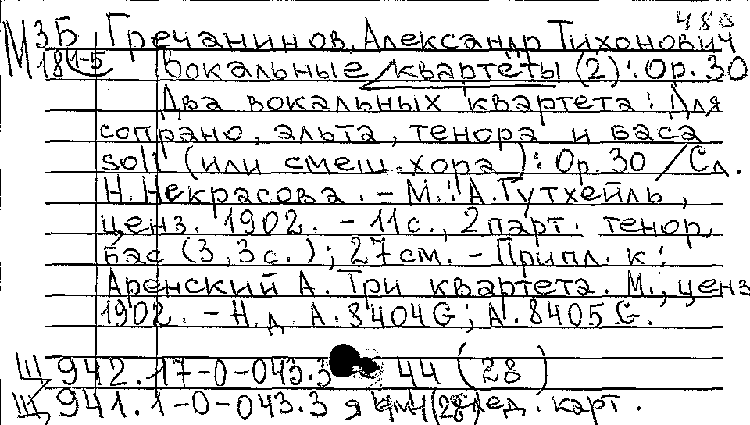 480
М3Б Гречанинов, Александр Тихонович
181-5 Вокальные квартеты (2): Ор. 30
Два вокальных квартета: Для
сопрано, альта, тенора и баса
soli (или смеш. хора): Ор. 30 / Сл.
Н. Некрасова. - М.: А. Гутхейль,
ценз. 1902. - 11с., 2 парт. тенор,
бас (3, 3с.); 27 см. - Припл. к:
Аренский А. Три квартета. М., ценз
1902. - Н.д. А. 8404G; А. 8405G.
Щ 942.17-0-043.3 44 (28)
Щ 941.1-0-043.3 я (28) ред. карт.